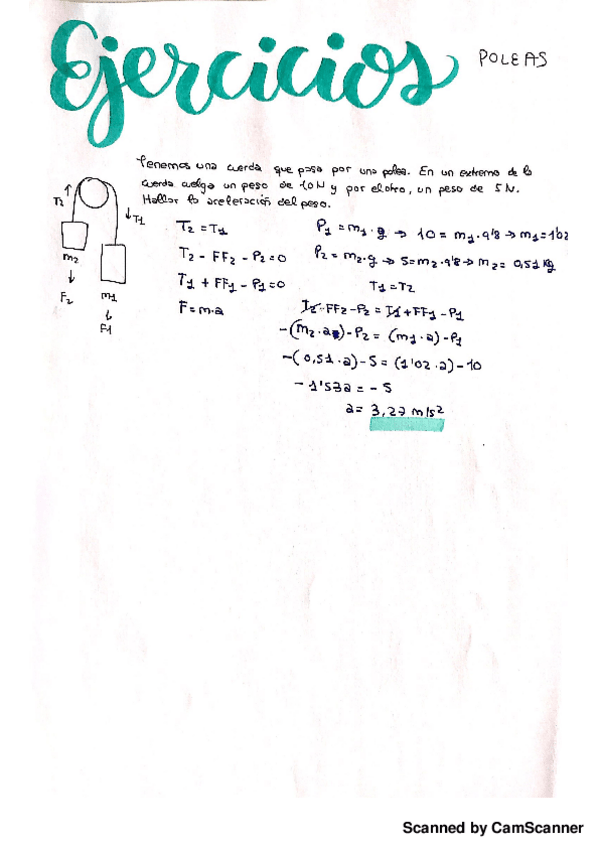 Ejercicios POLEAS
Tenemos una cuerda que pasa por una polea. En un extremo de la
cuerda cuelga un peso de 10N y por el otro, un peso de 5 N.
Hallar la aceleración del peso.
T2
T1
m2
F2
m1
F1
T2 = T1
T2 - FF2 - P2 = 0
T1 + FF1 - P1 = 0
F = m·a
P1 = m1 · g → 10 = m1 · 9'8 → m1 = 1'02
P2 = m2 · g → 5 = m2 · 9'8 → m2 = 0,51 kg
T1 = T2
T2 - FF2 - P2 = T1 + FF1 - P1
-(m2 · a) - P2 = (m1 · a) - P1
-(0,51 · a) - 5 = (1'02 · a) - 10
- 1'53a = - 5
a = 3,27 m/s²
Scanned by CamScanner